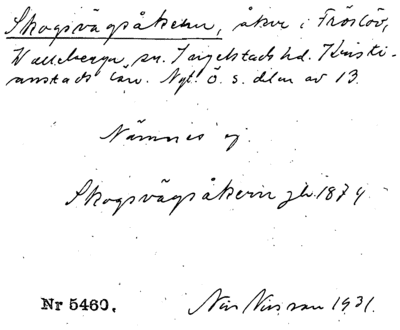 Skogsvägsåkern, åker i Fröslöv,
Valleberga sn. Ingelstads hd. Kristi-
anstads län. Ngt. ö. s. dlen av 13.
Nämnes ej.
Skogsvägsåkern jb. 1874
Nr 5460. Nils Nilsson 1931.